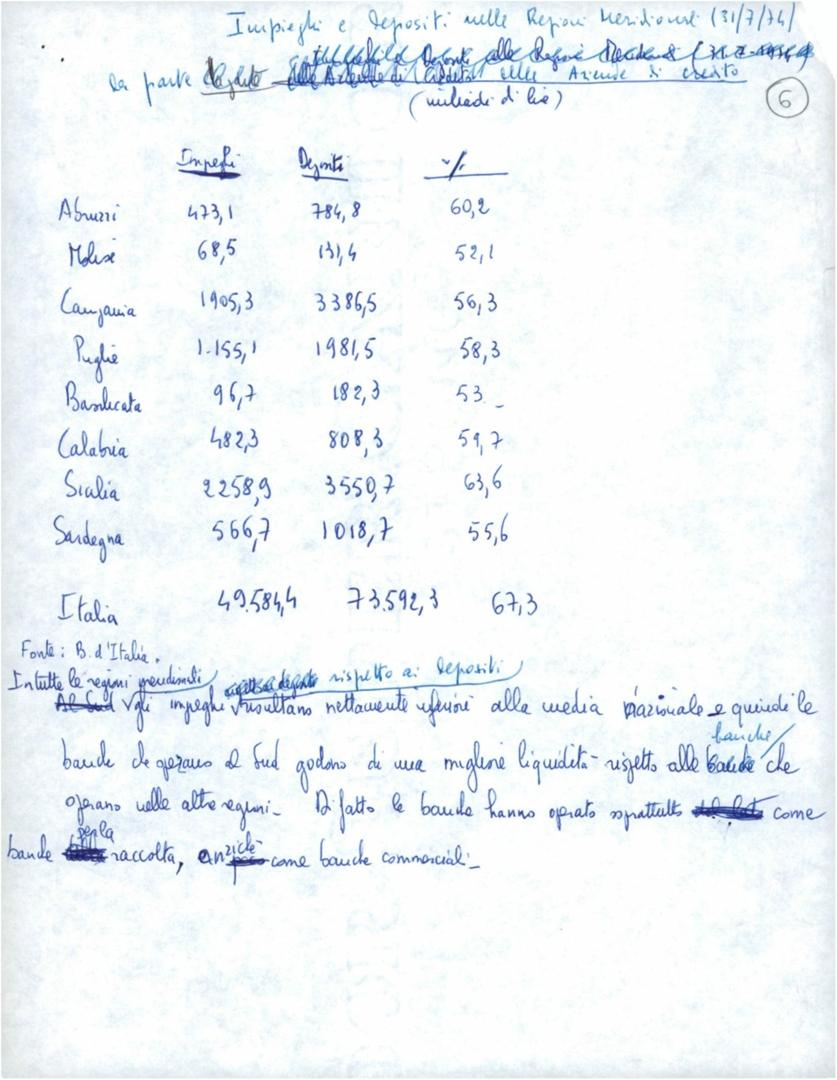 Impieghi e depositi nelle Regioni Meridionali (31/7/74)
da parte delle Aziende di credito
(miliardi di lire)
6
Impieghi Depositi %
Abruzzi 473,1 784,8 60,2
Molise 68,5 131,4 52,1
Campania 1905,3 3386,5 56,3
Puglie 1.155,1 1981,5 58,3
Basilicata 96,7 182,3 53_
Calabria 482,3 808,3 59,7
Sicilia 2258,9 3550,7 63,6
Sardegna 566,7 1018,7 55,6
Italia 49.584,4 73.592,3 67,3
Fonte: B. d'Italia.
In tutte le regioni meridionali rispetto ai depositi
Al Sud gli impieghi risultano nettamente inferiori alla media nazionale e quindi le
banche che operano al Sud godono di una migliore liquidità rispetto alle banche che
operano nelle altre regioni_ Di fatto le banche hanno operato soprattutto come
banche per la raccolta, anziché come banche commerciali_